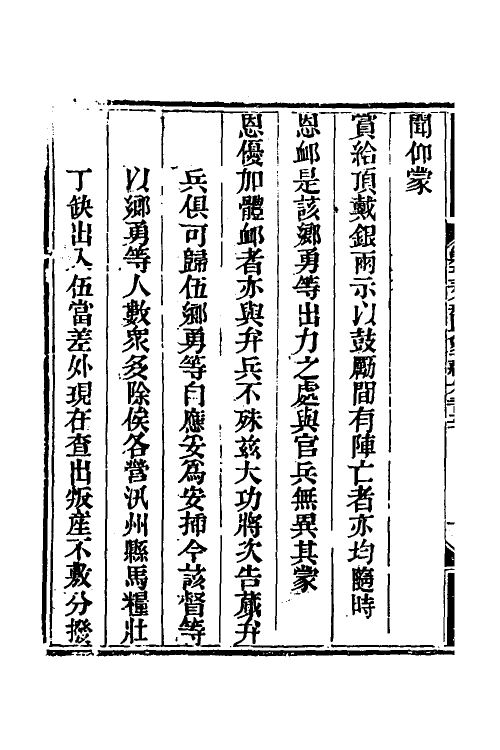 聞仰蒙
賞給頂戴銀兩示以鼓勵間有陣亡者亦均隨時
恩䘏是該鄉勇等出力之處與官兵無異其蒙
恩優加體䘏者亦與弁兵不殊兹大功將次告蕆弁
兵俱可歸伍鄉勇等自應妥為安揷今該督等
以鄉勇等人數衆多除俟各營汛州縣馬糧壯
丁缺出入伍當差外現在查出叛產不敷分撥